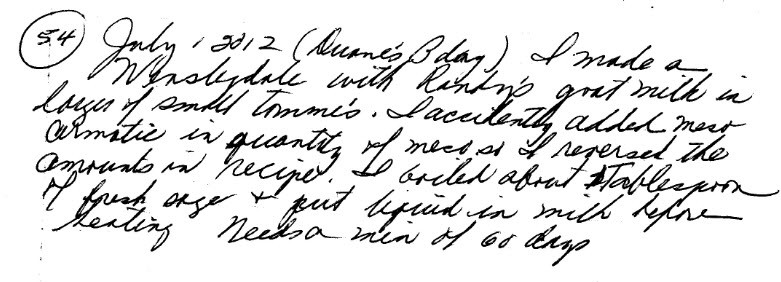 54 July 1 2012 (Duane's Bday) I made a
Wensleydale with Randy's goat milk in
of small tomme's. I accidently added meso
armatic in quantity of meso so I reversed the
amounts in recipe. I boiled about Tablespoon
of fresh sage + put liquid in milk before
heating Needs a min of 60 days